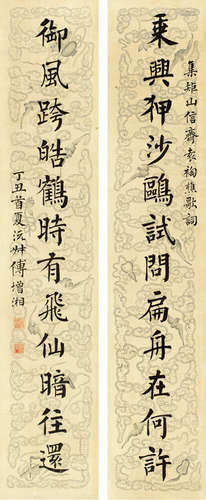 集矩山信齋袁裪樵歌詞
乘興狎沙鷗試問扁舟在何許
御風跨皓鶴時有飛仙暗往還
丁丑首夏沅叔傅增湘